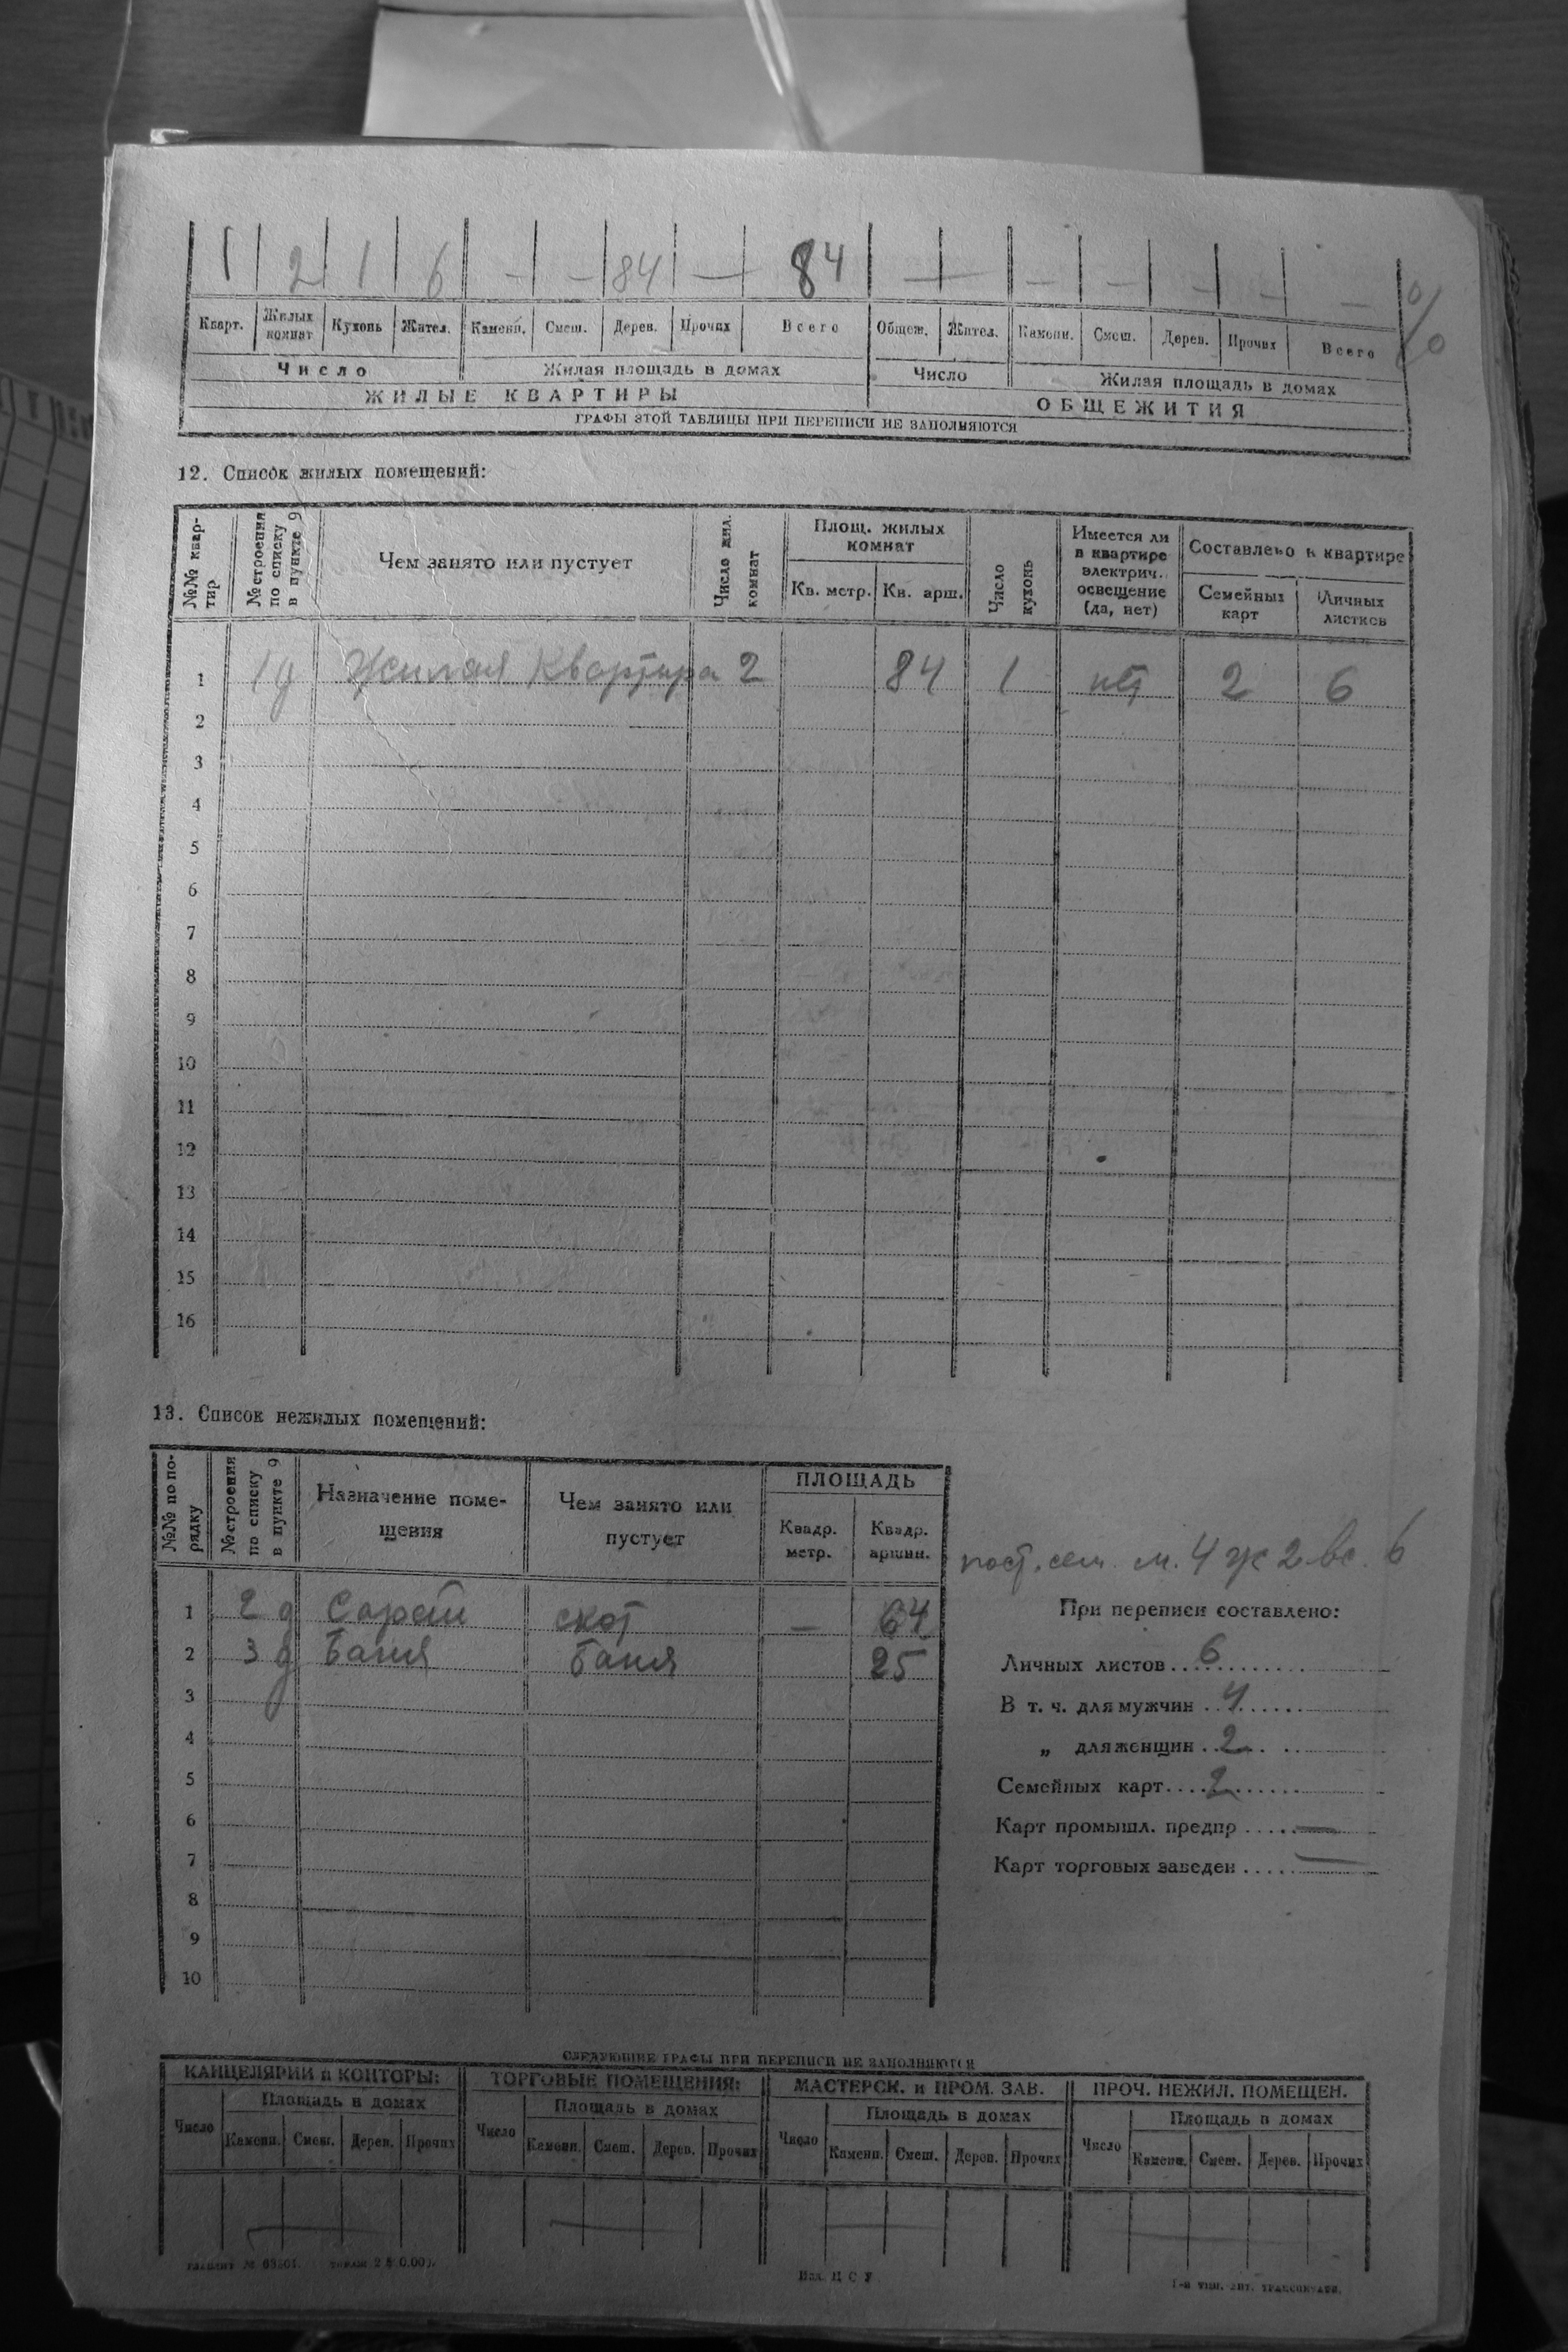 1 2 1 6 — — 84 — 84 — — — — — — —
Кварт. Жилых комнат Кухонь Жител. Каменн. Смеш. Дерев. Прочих Всего Общеж. Жител. Каменн. Смеш. Дерев. Прочих Всего
Число Жилая площадь в домах Число Жилая площадь в домах
ЖИЛЫЕ КВАРТИРЫ ОБЩЕЖИТИЯ
ГРАФЫ ЭТОЙ ТАБЛИЦЫ ПРИ ПЕРЕПИСИ НЕ ЗАПОЛНЯЮТСЯ
12. Список жилых помещений:
№№ квар-
тир
№ строения
по списку
в пункте 9
Чем занято или пустует
Число жил.
комнат
Площ. жилых
комнат
Кв. метр. Кв. арш.
Число
кухонь
Имеется ли
в квартире
электрич.
освещение
(да, нет)
Составлено в квартире
Семейных
карт
Личных
листков
1 1 д Жилая Квартира 2 84 1 нет 2 6
2
3
4
5
6
7
8
9
10
11
12
13
14
15
16
13. Список нежилых помещений:
№№ по по-
рядку
№ строения
по списку
в пункте 9
Назначение поме-
щения
Чем занято или
пустует
ПЛОЩАДЬ
Квадр.
метр.
Квадр.
аршин.
1 2 д Сарай скот — 64
2 3 д Баня Баня 25
3
4
5
6
7
8
9
10
м. 4 ж 2 вс. 6
При переписи составлено:
Личных листов 6
В т. ч. для мужчин 4
„ для женщин 2
Семейных карт 2
Карт промышл. предпр —
Карт торговых заведен —
СЛЕДУЮЩИЕ ГРАФЫ ПРИ ПЕРЕПИСИ НЕ ЗАПОЛНЯЮТСЯ
КАНЦЕЛЯРИИ и КОНТОРЫ: ТОРГОВЫЕ ПОМЕЩЕНИЯ: МАСТЕРСК. и ПРОМ. ЗАВ. ПРОЧ. НЕЖИЛ. ПОМЕЩЕН.
Число Площадь в домах Число Площадь в домах Число Площадь в домах Число Площадь в домах
Каменн. Смеш. Дерев. Прочих Каменн. Смеш. Дерев. Прочих Каменн. Смеш. Дерев. Прочих Каменн. Смеш. Дерев. Прочих
Изд. Ц С У